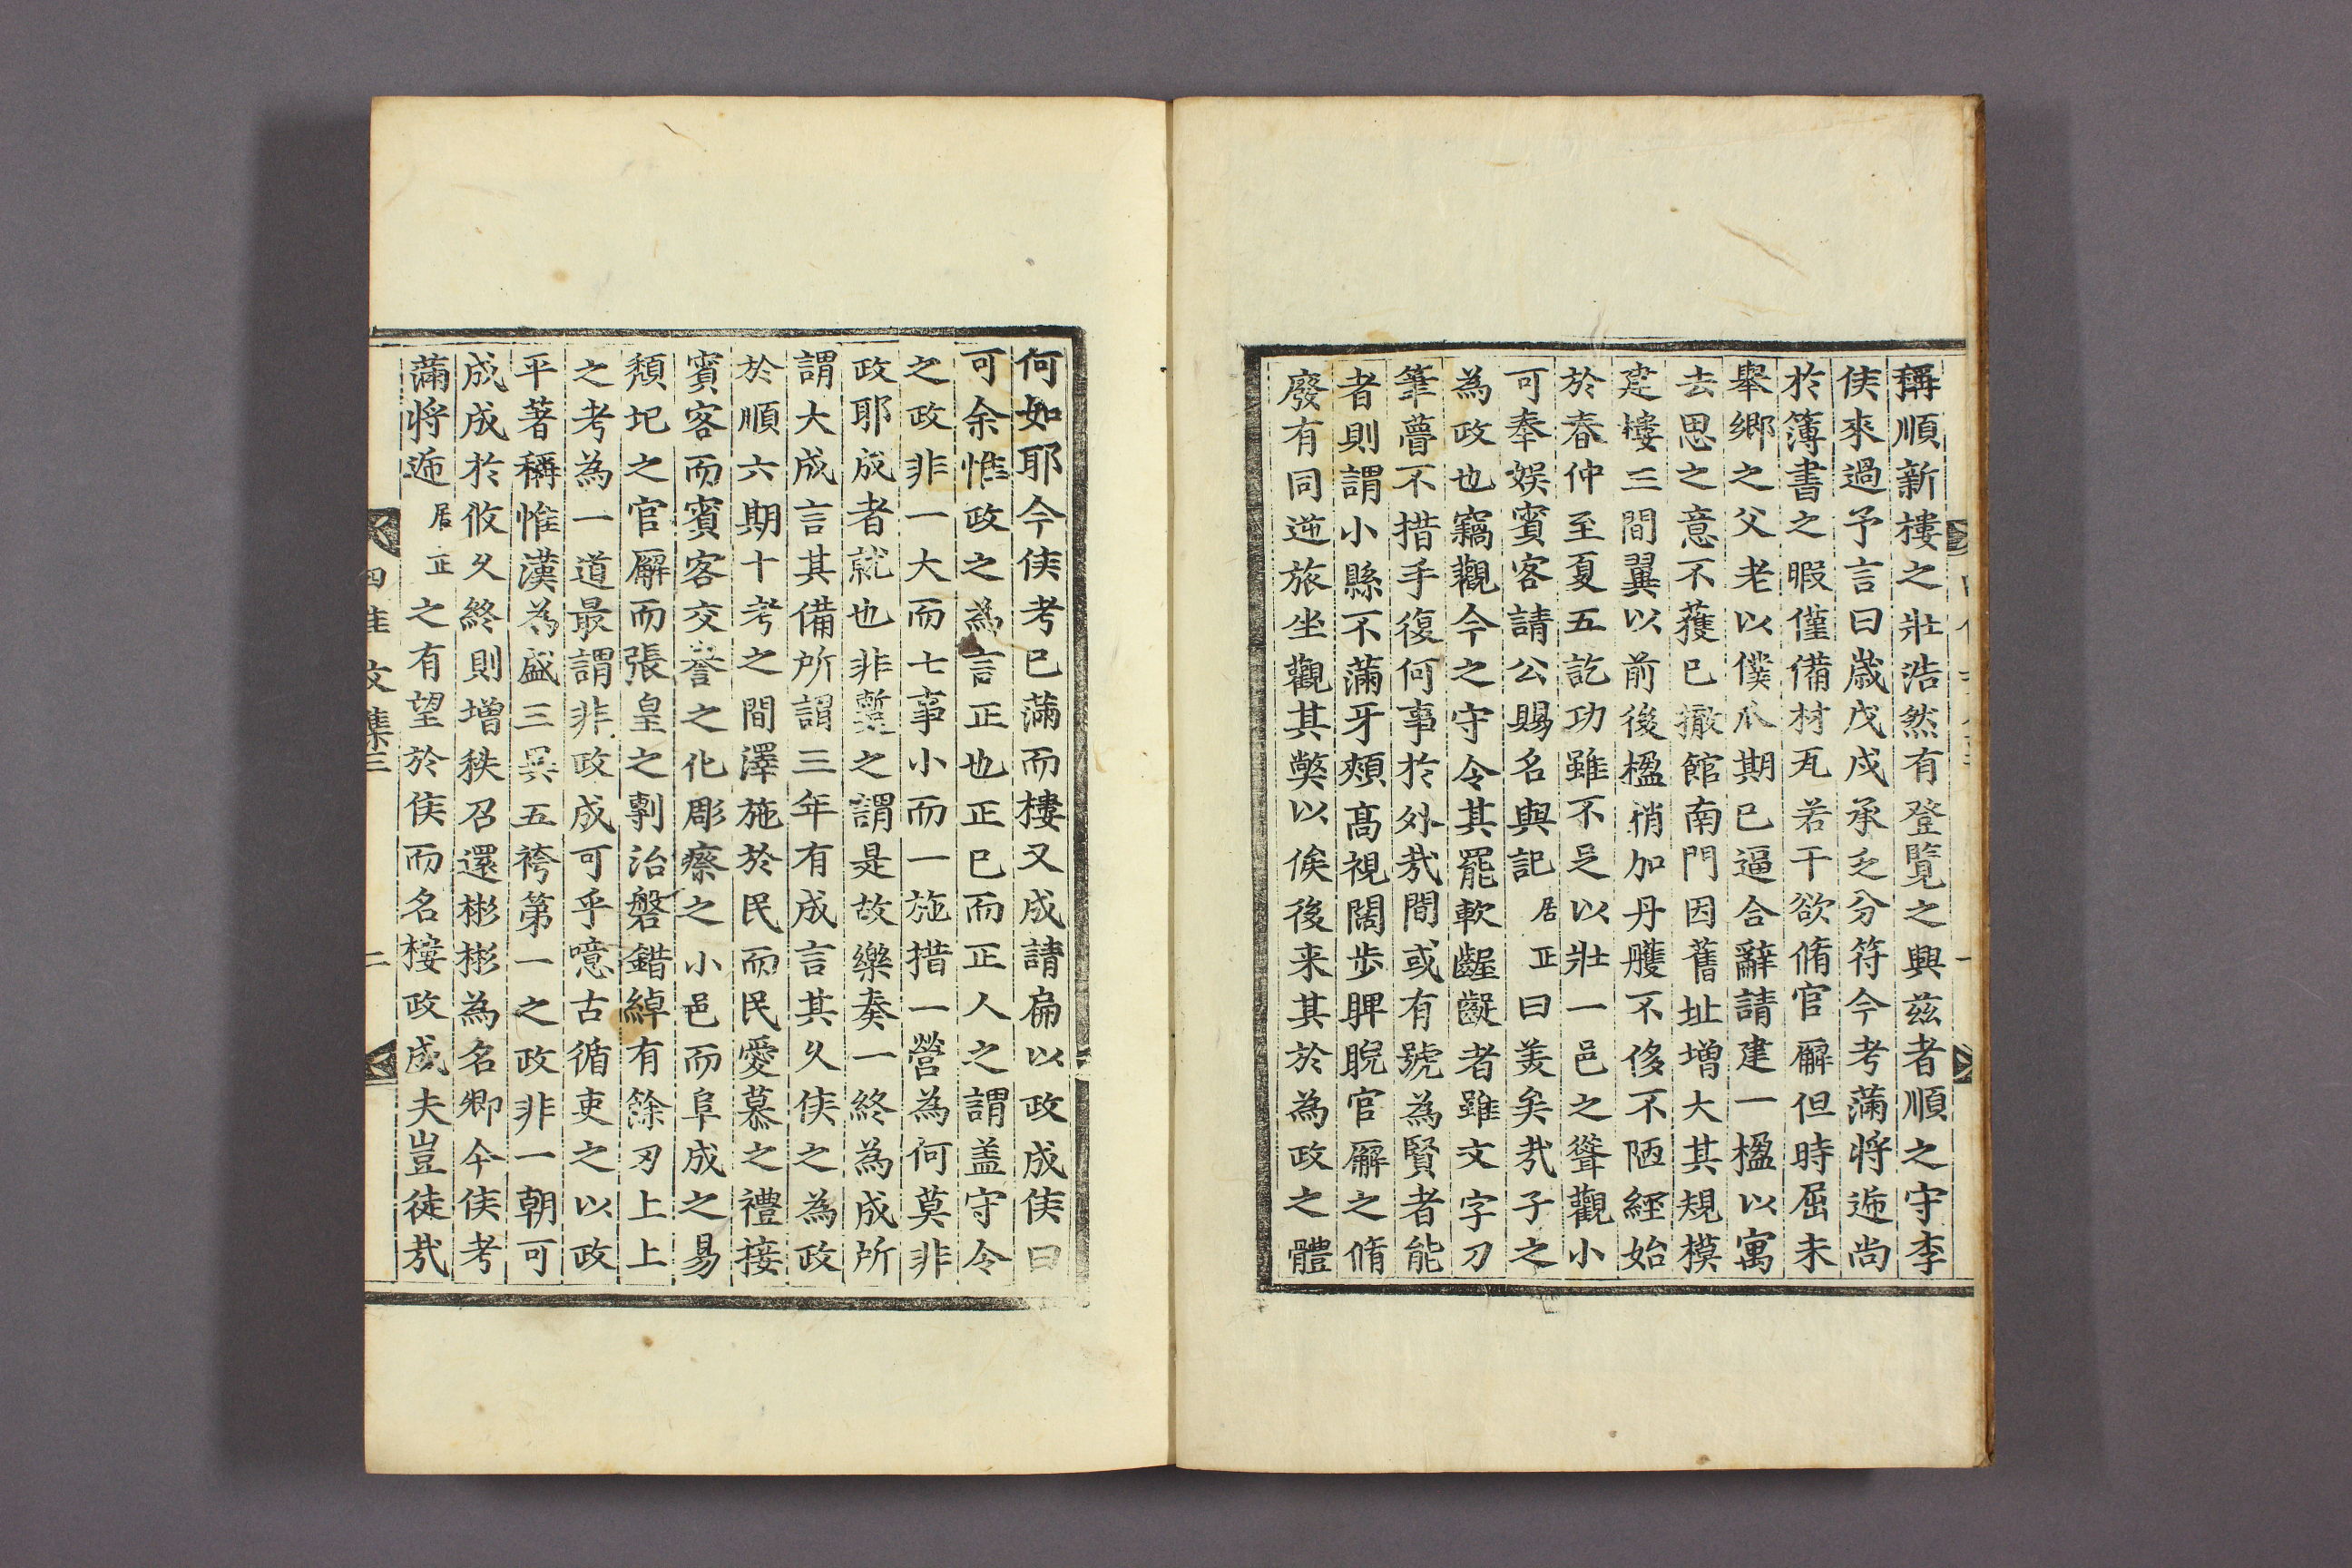 稱順新樓之壯浩然有登覽之興茲者順之守李
侯來過予言曰歲戊戌承乏分符今考滿將遞尚
於簿書之暇僅備材瓦若干欲脩官廨但時屈未
擧鄕之父老以僕瓜期已逼合辭請建一楹以寓
去思之意不獲已撤館南門因舊址增大其規模
建樓三間翼以前後楹稍加丹雘不侈不陋經始
於春仲至夏五訖功雖不足以壯一邑之聳觀小
可奉娛賓客請公賜名與記居正曰美矣㢤子之
為政也竊觀今之守令其罷軟齷齪者雖文字刀
筆瞢不措手復何事於外㢤間或有號為賢者能
者則謂小縣不滿牙頰高視闊步睥睨官廨之脩
廢有同逆旅坐觀其弊以俟後来其於為政之體
何如耶今侯考已滿而樓又成請扁以政成侯曰
可余惟政之為言正也正已而正人之謂盖守令
之政非一大而七事小而一施措一營為何莫非
政耶成者就也非蹔之謂是故樂奏一終為成所
謂大成言其備所謂三年有成言其久侯之為政
於順六期十考之間澤施於民而民愛慕之禮接
賓客而賓客交譽之化彫瘵之小邑而阜成之易
頹圮之官廨而張皇之剸治磐錯綽有餘刃上上
之考為一道最謂非政成可乎噫古循吏之以政
平著稱惟漢為盛三異五袴第一之政非一朝可
成成於攸久終則增秩召還彬彬為名卿今侯考
滿將遞居正之有望於侯而名樓政成夫豈徒㢤
四佳文集三 二